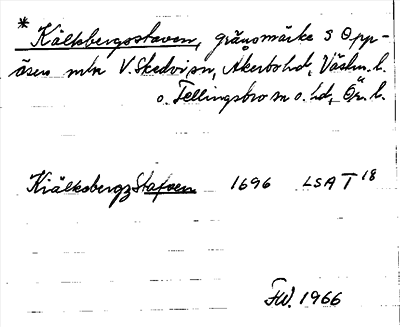 * Kälksbergsstaven, gränsmärke S Opp-
åsen mln V. Skedvi sn, Åkerbo hd, Västm. l.
o. Fellingsbro sn o. hd, Ör. l.
Kiälksbergz Stafwen 1696 LSA T 18
FW. 1966